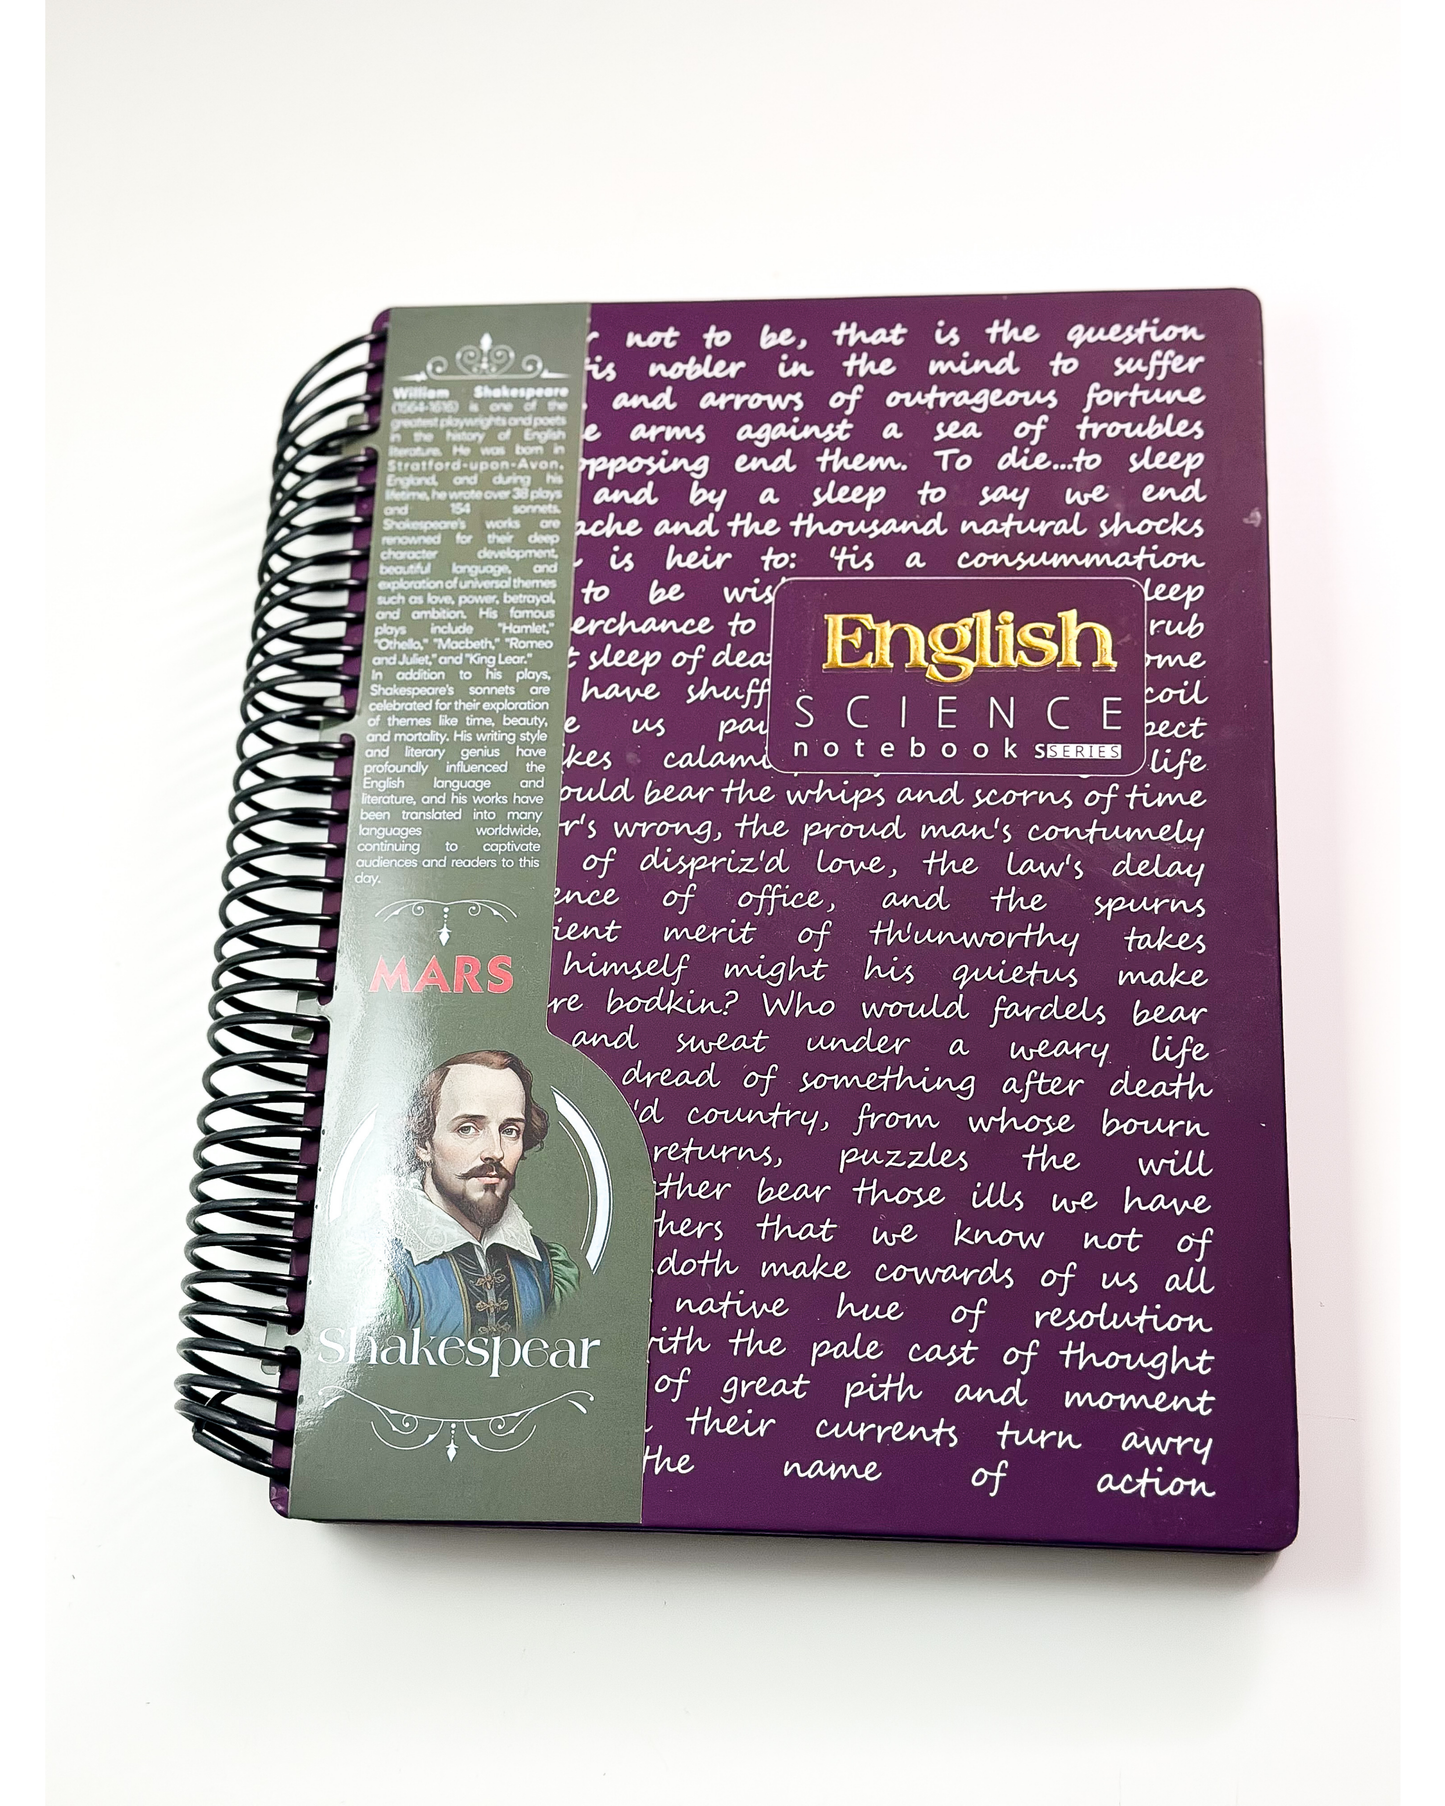 William Shakespeare
(1564-1616) is one of the
greatest playwrights and poets
in the history of English
literature. He was born in
Stratford-upon-Avon,
England, and during his
lifetime, he wrote over 38 plays
and 154 sonnets.
Shakespeare's works are
renowned for their deep
character development,
beautiful language, and
exploration of universal themes
such as love, power, betrayal,
and ambition. His famous
plays include "Hamlet,"
"Othello," "Macbeth," "Romeo
and Juliet," and "King Lear."
In addition to his plays,
Shakespeare's sonnets are
celebrated for their exploration
of themes like time, beauty,
and mortality. His writing style
and literary genius have
profoundly influenced the
English language and
literature, and his works have
been translated into many
languages worldwide,
continuing to captivate
audiences and readers to this
day.
MARS
Shakespear
not to be, that is the question
tis nobler in the mind to suffer
and arrows of outrageous fortune
arms against a sea of troubles
opposing end them. To die...to sleep
and by a sleep to say we end
ache and the thousand natural shocks
is heir to: 'tis a consummation
to be wis leep
erchance to rub
t sleep of dea ome
have shuff coil
e us pau pect
kes calami life
ould bear the whips and scorns of time
r's wrong, the proud man's contumely
of dispriz'd love, the law's delay
ence of office, and the spurns
ient merit of th'unworthy takes
himself might his quietus make
re bodkin? Who would fardels bear
and sweat under a weary life
dread of something after death
'd country, from whose bourn
returns, puzzles the will
ther bear those ills we have
hers that we know not of
doth make cowards of us all
native hue of resolution
ith the pale cast of thought
of great pith and moment
their currents turn awry
the name of action
English
SCIENCE
notebooks SERIES